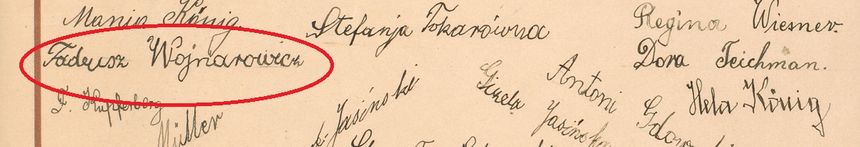 Mania König
Stefanja Tokarówna
Regina Wiesner.
Tadeusz Wojnarowicz
Dora Teichman.
F. Kupferberg
Müller
Jasiński
Antoni
Gizela Jasińska
Hela König